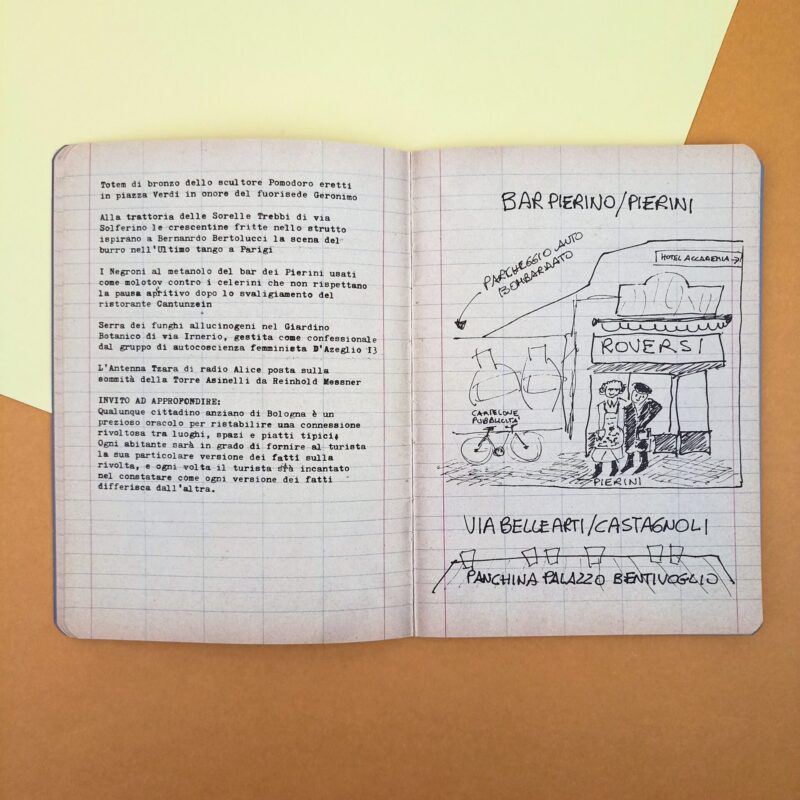 Totem di bronzo dello scultore Pomodoro eretti
in piazza Verdi in onore del fuorisede Geronimo
Alla trattoria delle Sorelle Trebbi di via
Solferino le crescentine fritte nello strutto
ispirano a Bernardo Bertolucci la scena del
burro nell'Ultimo tango a Parigi
I Negroni al metanolo del bar dei Pierini usati
come molotov contro i celerini che non rispettano
la pausa apritivo dopo lo svaligiamento del
ristorante Cantunzein
Serra dei funghi allucinogeni nel Giardino
Botanico di via Irnerio, gestita come confessionale
dal gruppo di autocoscienza femminista D'Azeglio I3
L'Antenna Tzara di radio Alice posta sulla
sommità della Torre Asinelli da Reinhold Messner
INVITO AD APPROFONDIRE:
Qualunque cittadino anziano di Bologna è un
prezioso oracolo per ristabilire una connessione
rivoltosa tra luoghi, spazi e piatti tipici.
Ogni abitante sarà in grado di fornire al turista
la sua particolare versione dei fatti sulla
rivolta, e ogni volta il turista stà incantato
nel constatare come ogni versione dei fatti
differisca dall'altra.
BAR PIERINO/PIERINI
PARCHEGGIO AUTO
BOMBARDATO
HOTEL ACCADEMIA →
ROVERSI
CARTELONE
PUBBLICITÀ
PIERINI
VIA BELLE ARTI/CASTAGNOLI
PANCHINA PALAZZO BENTIVOGLIO